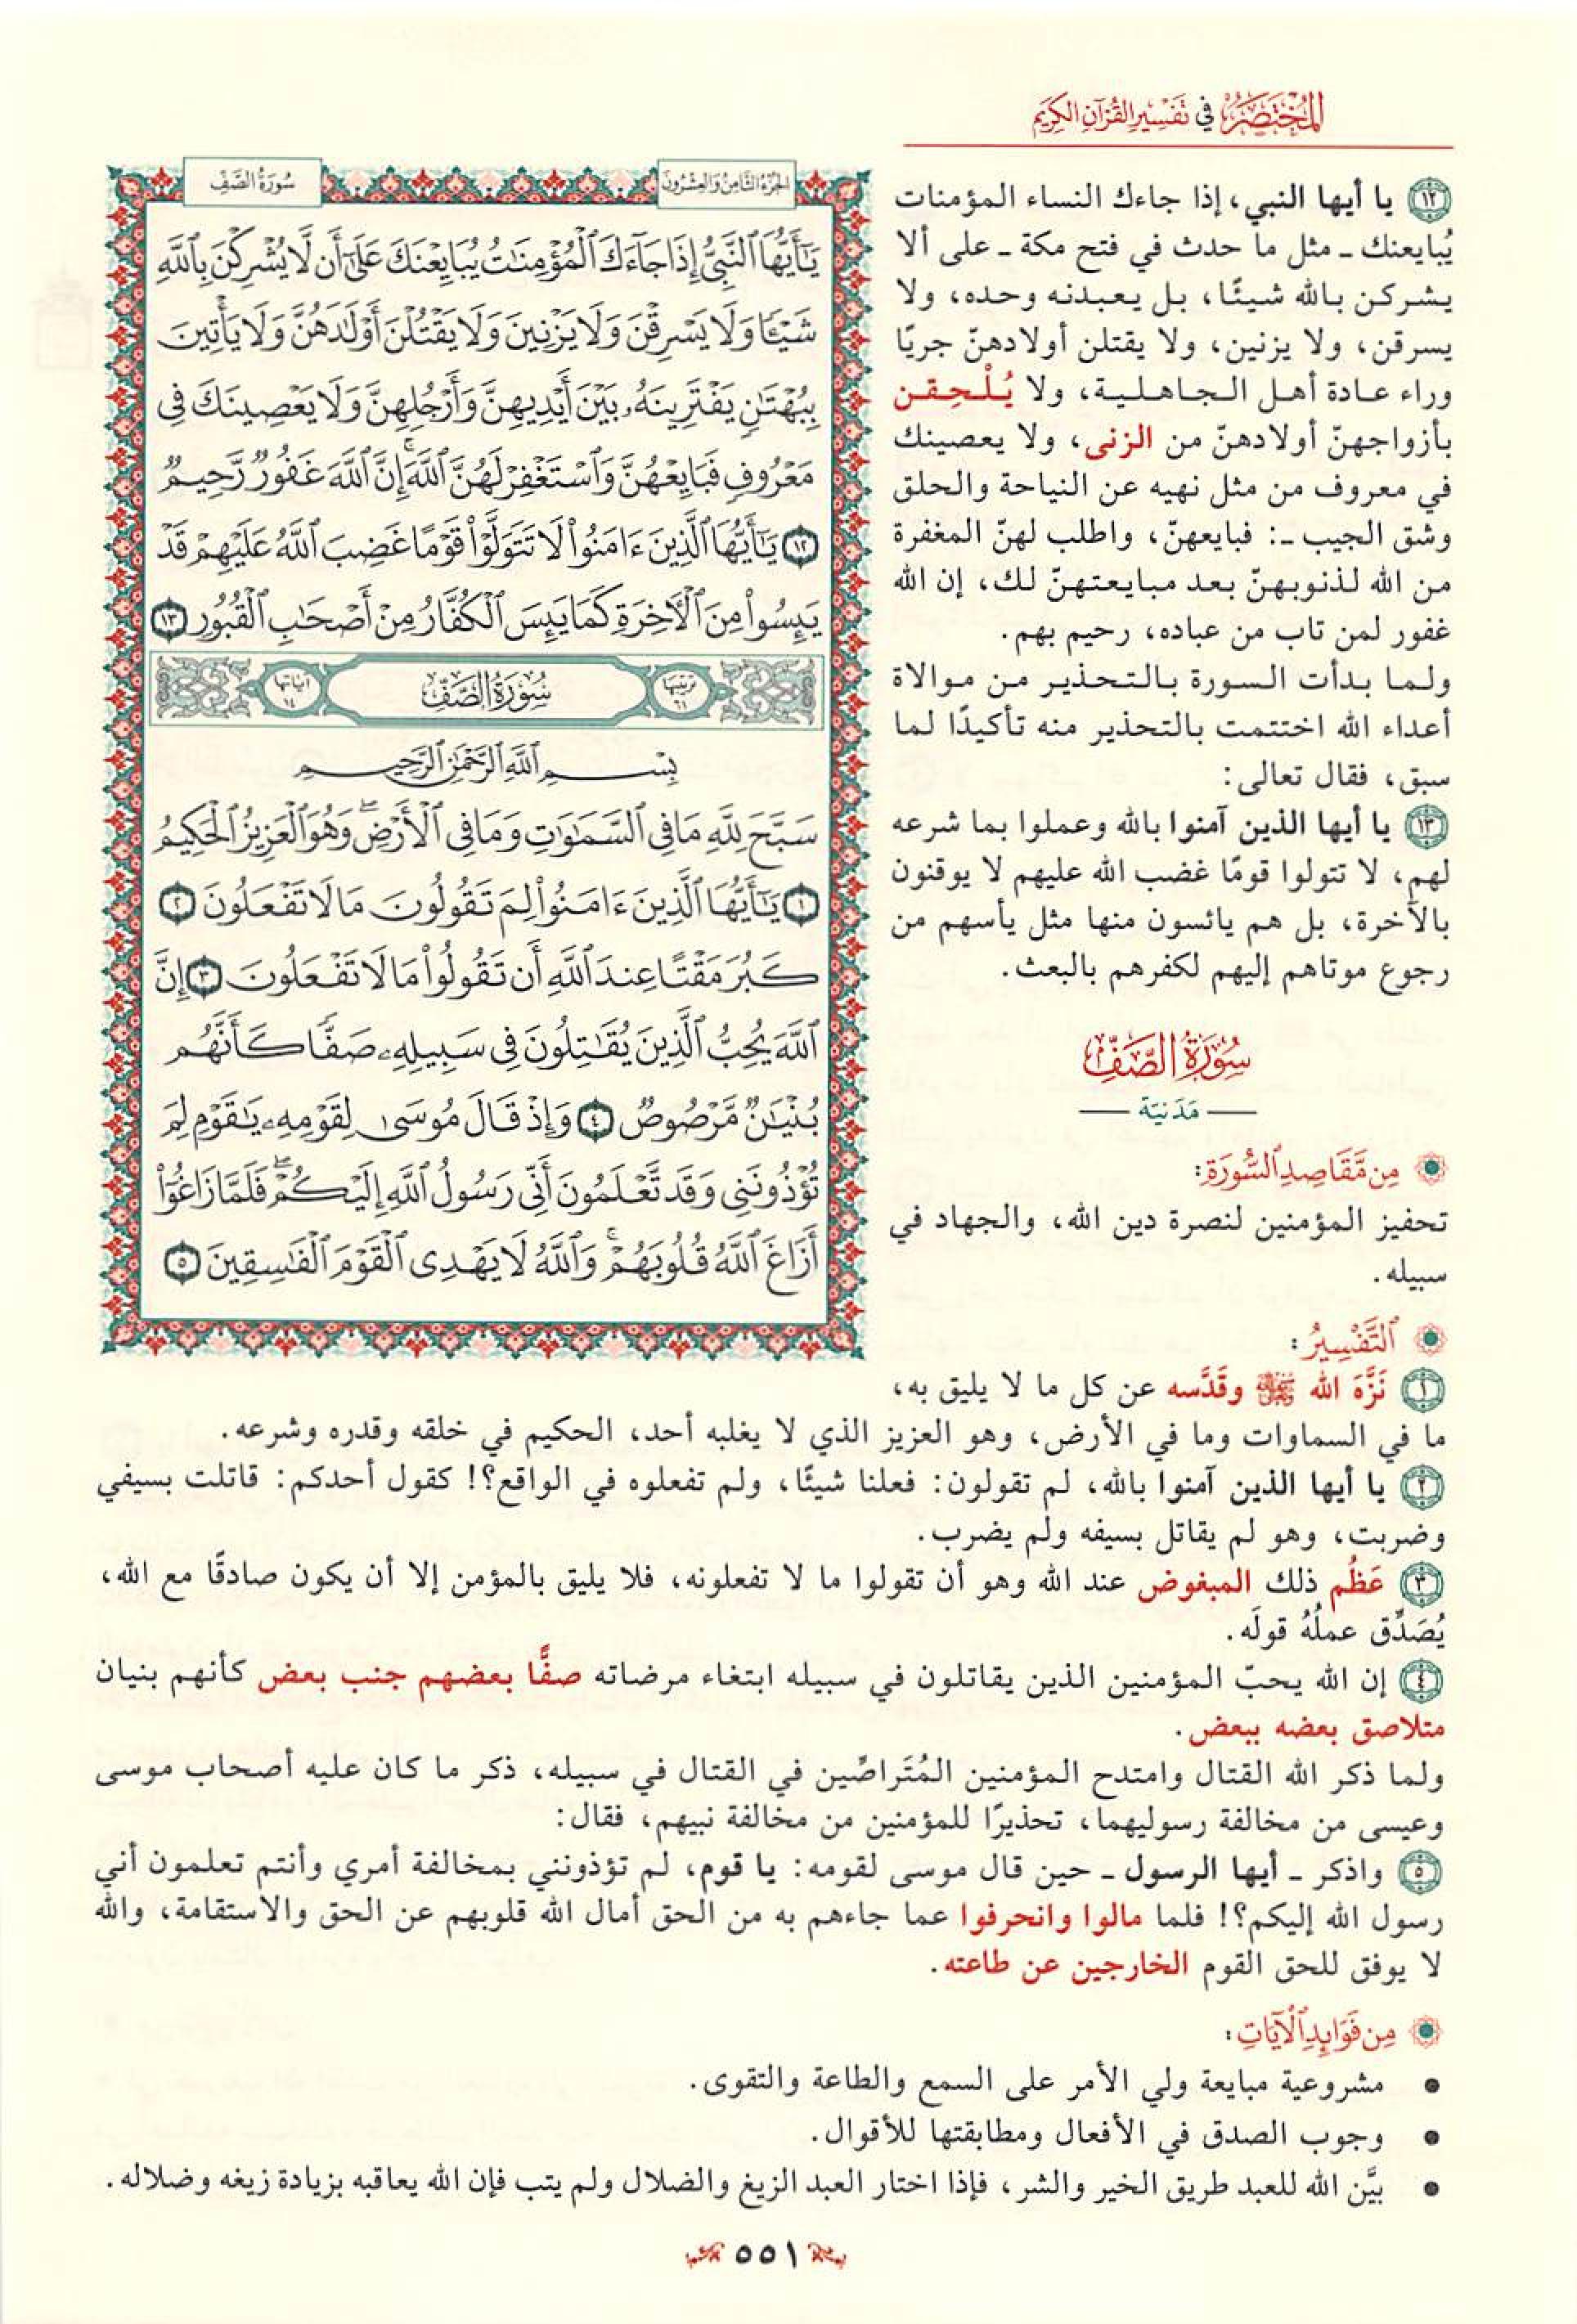 المختصر في تفسير القرآن الكريم
الجزء الثامن والعشرون
سورة الصف
يَٰٓأَيُّهَا ٱلنَّبِيُّ إِذَا جَآءَكَ ٱلْمُؤْمِنَٰتُ يُبَايِعْنَكَ عَلَىٰٓ أَن لَّا يُشْرِكْنَ بِٱللَّهِ
شَيْـًٔا وَلَا يَسْرِقْنَ وَلَا يَزْنِينَ وَلَا يَقْتُلْنَ أَوْلَٰدَهُنَّ وَلَا يَأْتِينَ
بِبُهْتَٰنٍ يَفْتَرِينَهُۥ بَيْنَ أَيْدِيهِنَّ وَأَرْجُلِهِنَّ وَلَا يَعْصِينَكَ فِى
مَعْرُوفٍ فَبَايِعْهُنَّ وَٱسْتَغْفِرْ لَهُنَّ ٱللَّهَۚ إِنَّ ٱللَّهَ غَفُورٌ رَّحِيمٌ
١٢ يَٰٓأَيُّهَا ٱلَّذِينَ ءَامَنُوا۟ لَا تَتَوَلَّوْا۟ قَوْمًا غَضِبَ ٱللَّهُ عَلَيْهِمْ قَدْ
يَئِسُوا۟ مِنَ ٱلْأٓخِرَةِ كَمَا يَئِسَ ٱلْكُفَّارُ مِنْ أَصْحَٰبِ ٱلْقُبُورِ ١٣
ترتيبها ٦١ سورة الصف آياتها ١٤
بِسْمِ ٱللَّهِ ٱلرَّحْمَٰنِ ٱلرَّحِيمِ
سَبَّحَ لِلَّهِ مَا فِى ٱلسَّمَٰوَٰتِ وَمَا فِى ٱلْأَرْضِۖ وَهُوَ ٱلْعَزِيزُ ٱلْحَكِيمُ
١ يَٰٓأَيُّهَا ٱلَّذِينَ ءَامَنُوا۟ لِمَ تَقُولُونَ مَا لَا تَفْعَلُونَ ٢
كَبُرَ مَقْتًا عِندَ ٱللَّهِ أَن تَقُولُوا۟ مَا لَا تَفْعَلُونَ ٣ إِنَّ
ٱللَّهَ يُحِبُّ ٱلَّذِينَ يُقَٰتِلُونَ فِى سَبِيلِهِۦ صَفًّا كَأَنَّهُم
بُنْيَٰنٌ مَّرْصُوصٌ ٤ وَإِذْ قَالَ مُوسَىٰ لِقَوْمِهِۦ يَٰقَوْمِ لِمَ
تُؤْذُونَنِى وَقَد تَّعْلَمُونَ أَنِّى رَسُولُ ٱللَّهِ إِلَيْكُمْۖ فَلَمَّا زَاغُوٓا۟
أَزَاغَ ٱللَّهُ قُلُوبَهُمْۚ وَٱللَّهُ لَا يَهْدِى ٱلْقَوْمَ ٱلْفَٰسِقِينَ ٥
١٢ يا أيها النبي، إذا جاءك النساء المؤمنات
يُبايعنك ـ مثل ما حدث في فتح مكة ـ على ألا
يشركن بالله شيئًا، بل يعبدنه وحده، ولا
يسرقن، ولا يزنين، ولا يقتلن أولادهنّ جريًا
وراء عادة أهل الجاهلية، ولا يُلْحِقن
بأزواجهنّ أولادهنّ من الزنى، ولا يعصينك
في معروف من مثل نهيه عن النياحة والحلق
وشق الجيب ـ: فبايعهنّ، واطلب لهنّ المغفرة
من الله لذنوبهنّ بعد مبايعتهنّ لك، إن الله
غفور لمن تاب من عباده، رحيم بهم.
ولما بدأت السورة بالتحذير من موالاة
أعداء الله اختتمت بالتحذير منه تأكيدًا لما
سبق، فقال تعالى:
١٣ يا أيها الذين آمنوا بالله وعملوا بما شرعه
لهم، لا تتولوا قومًا غضب الله عليهم لا يوقنون
بالآخرة، بل هم يائسون منها مثل يأسهم من
رجوع موتاهم إليهم لكفرهم بالبعث.
سورة الصف
مدنية
من مقاصد السورة:
تحفيز المؤمنين لنصرة دين الله، والجهاد في
سبيله.
التفسير:
١ نَزَّهَ الله ﷻ وقَدَّسه عن كل ما لا يليق به،
ما في السماوات وما في الأرض، وهو العزيز الذي لا يغلبه أحد، الحكيم في خلقه وقدره وشرعه.
٢ يا أيها الذين آمنوا بالله، لم تقولون: فعلنا شيئًا، ولم تفعلوه في الواقع؟! كقول أحدكم: قاتلت بسيفي
وضربت، وهو لم يقاتل بسيفه ولم يضرب.
٣ عَظُم ذلك المبغوض عند الله وهو أن تقولوا ما لا تفعلونه، فلا يليق بالمؤمن إلا أن يكون صادقًا مع الله،
يُصَدِّق عملُهُ قولَه.
٤ إن الله يحبّ المؤمنين الذين يقاتلون في سبيله ابتغاء مرضاته صفًّا بعضهم جنب بعض كأنهم بنيان
متلاصق بعضه ببعض.
ولما ذكر الله القتال وامتدح المؤمنين المُتَراصِّين في القتال في سبيله، ذكر ما كان عليه أصحاب موسى
وعيسى من مخالفة رسوليهما، تحذيرًا للمؤمنين من مخالفة نبيهم، فقال:
٥ واذكر ـ أيها الرسول ـ حين قال موسى لقومه: يا قوم، لم تؤذونني بمخالفة أمري وأنتم تعلمون أني
رسول الله إليكم؟! فلما مالوا وانحرفوا عما جاءهم به من الحق أمال الله قلوبهم عن الحق والاستقامة، والله
لا يوفق للحق القوم الخارجين عن طاعته.
من فوائد الآيات:
• مشروعية مبايعة ولي الأمر على السمع والطاعة والتقوى.
• وجوب الصدق في الأفعال ومطابقتها للأقوال.
• بيَّن الله للعبد طريق الخير والشر، فإذا اختار العبد الزيغ والضلال ولم يتب فإن الله يعاقبه بزيادة زيغه وضلاله.
٥٥١